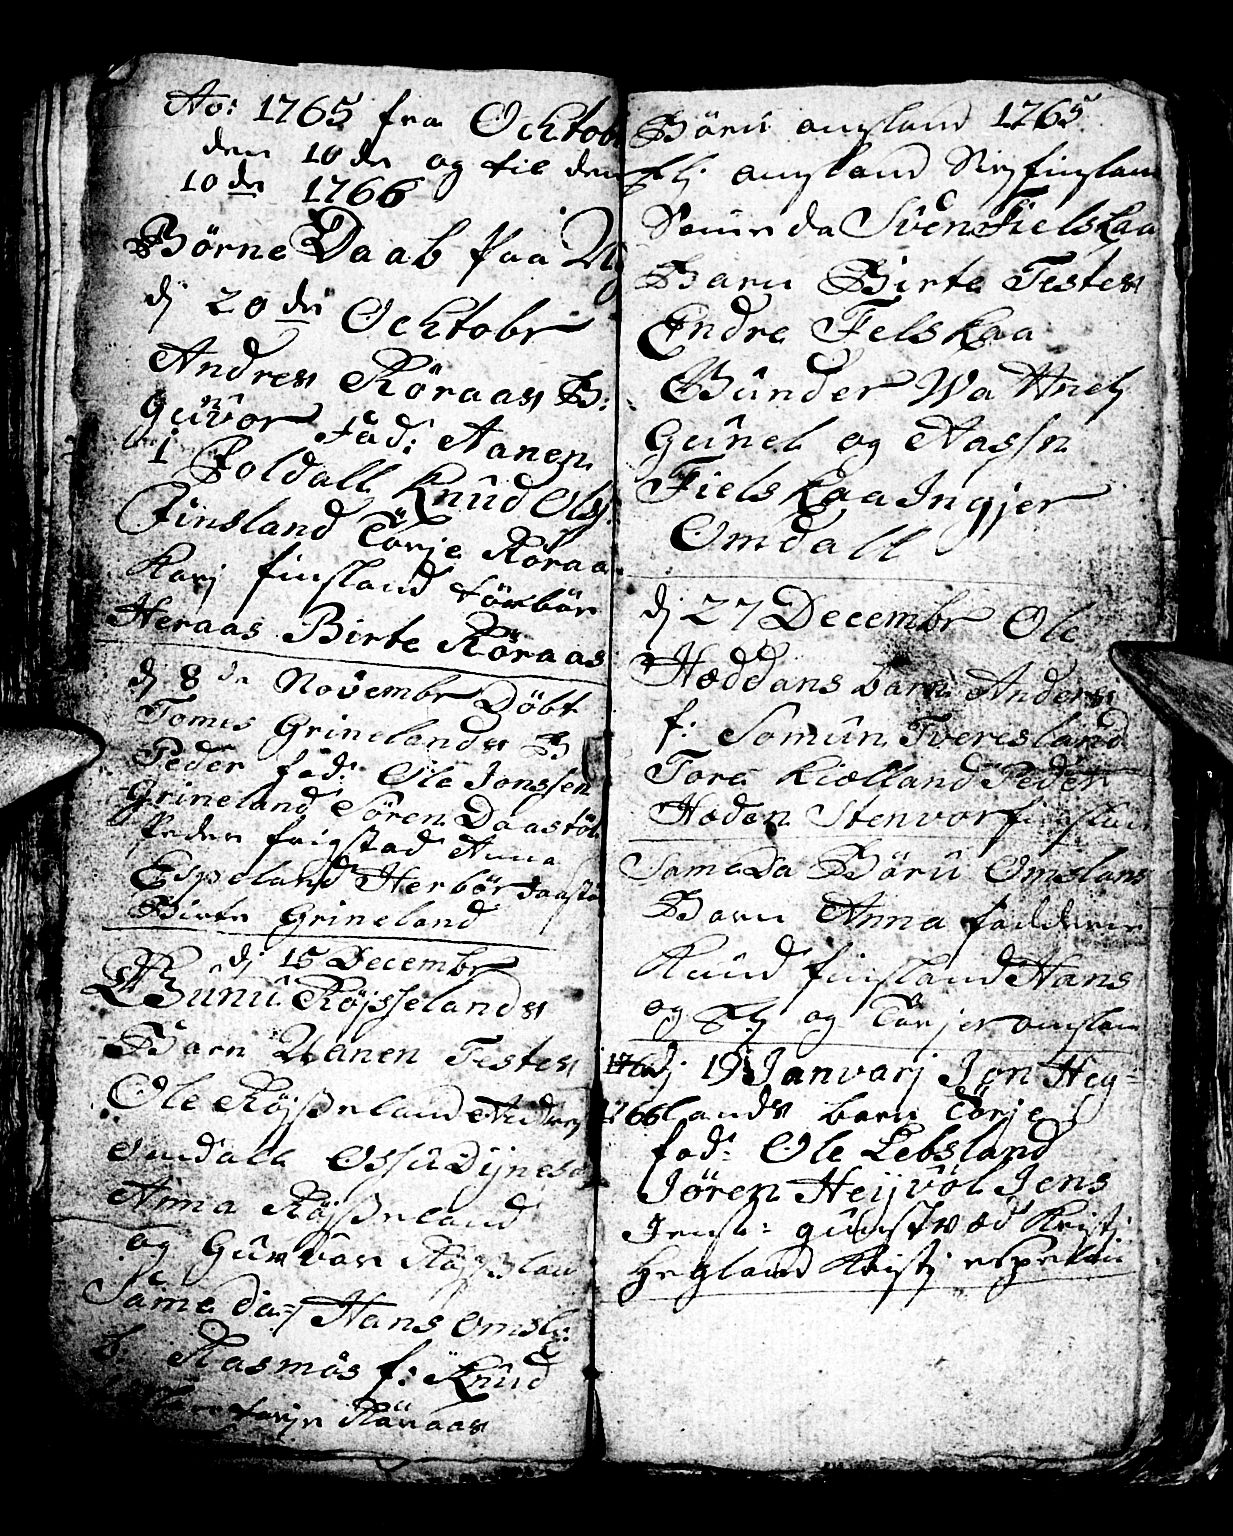 Ao: 1765 fra Ochtobr
den 10de og til den
10de 1766
Börne Daab paa
dj 20de Ochtobr
Andres Röraas B:
Gunvor Fad: Aanen
i Foldall Knud Ols:
Finsland Törje Röraas
Karj finsland Törbör
Heraas Birte Röraas
dj 8de Novembr Döbt
Tomes Grinelands B
Peder fad: Ole Jonssen
Grineland Sören Daastöl
Peder frigstad Anna
Espeland Herbör Daastöl
Birte Grineland
dj 15 Decembr
Gunu Röjsselands
Barn Aanen Testes
Ole Röjsseland
Omdall Ossu
Anna Röjsseland
og Gunvor Röjsseland
Same da: Hans Omsl:
b. Rasmös f: Knud
Röraas
Böru omsland 1765
omsland finsland
Same da Sven Fielskaa
Barn Birte Testes
Endre Felskaa
Gunder
Gunel og Aasse
Fielskaa Ingjer
Omdall
dj 27 Decembr Ole
Hæddans barn Anders
f: Somun Tveresland
Tore Kiælland Peder
Hæden Stenvor finsland
Same Da Böru Omslans
Barn Anna faddere
Knud finsland Hans
og og Törjer omsland
dj 19 Janvarj Jon Heg=
1766 lands barn Törje
fad: Ole Lebsland
Jören Heijvöl Jens
Jens: Kristj:
Hegland Kristj